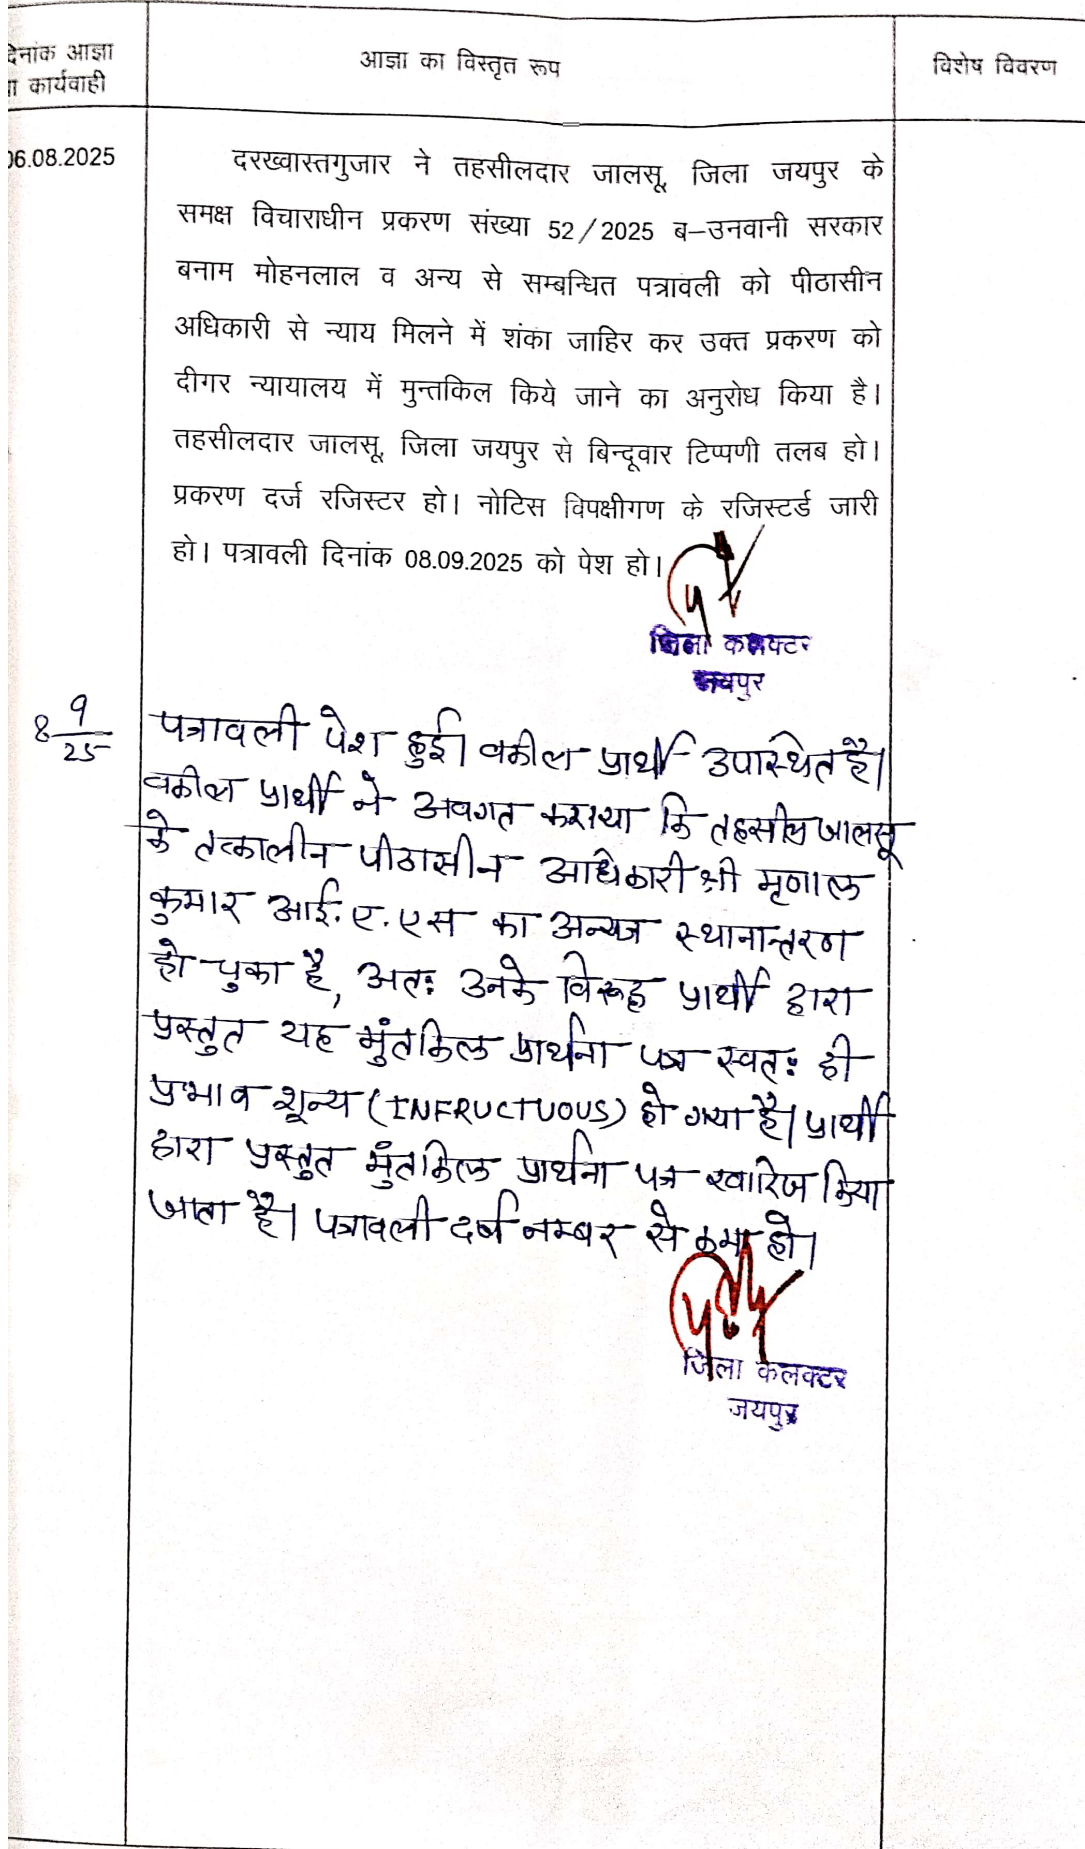 दिनांक आज्ञा
या कार्यवाही
आज्ञा का विस्तृत रूप
विशेष विवरण
06.08.2025
दरख्वास्तगुजार ने तहसीलदार जालसू, जिला जयपुर के
समक्ष विचाराधीन प्रकरण संख्या 52/2025 ब–उनवानी सरकार
बनाम मोहनलाल व अन्य से सम्बन्धित पत्रावली को पीठासीन
अधिकारी से न्याय मिलने में शंका जाहिर कर उक्त प्रकरण को
दीगर न्यायालय में मुन्तकिल किये जाने का अनुरोध किया है।
तहसीलदार जालसू, जिला जयपुर से बिन्दूवार टिप्पणी तलब हो।
प्रकरण दर्ज रजिस्टर हो। नोटिस विपक्षीगण के रजिस्टर्ड जारी
हो। पत्रावली दिनांक 08.09.2025 को पेश हो।
जिला कलक्टर
जयपुर
8 9/25
पत्रावली पेश हुई। वकील प्रार्थी उपस्थित है।
वकील प्रार्थी ने अवगत कराया कि तहसील जालसू
के तत्कालीन पीठासीन अधिकारी श्री मृणाल
कुमार आई.ए.एस का अन्यत्र स्थानान्तरण
हो चुका है, अतः उनके विरूद्ध प्रार्थी द्वारा
प्रस्तुत यह मुंतकिल प्रार्थना पत्र स्वतः ही
प्रभाव शून्य (INFRUCTUOUS) हो गया है। प्रार्थी
द्वारा प्रस्तुत मुंतकिल प्रार्थना पत्र खारिज किया
जाता है। पत्रावली दर्ज नम्बर से कम हो।
जिला कलक्टर
जयपुर